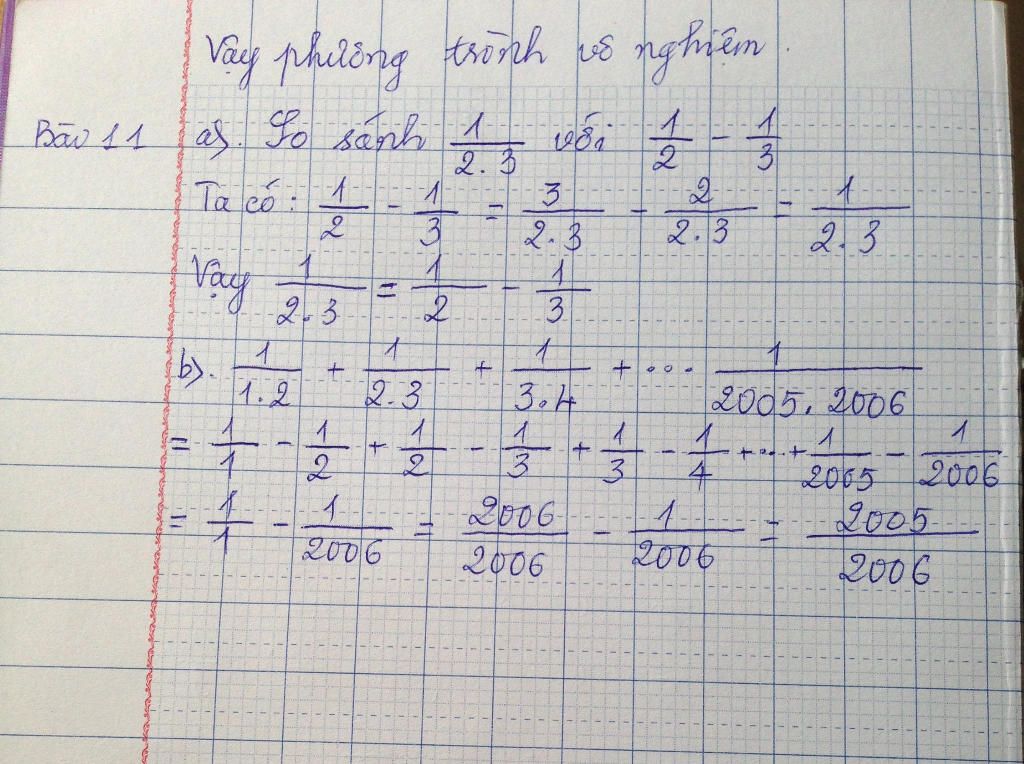 Vạy phương trình vô nghiệm.
Bài 11 a). So sánh 1/2.3 với 1/2 - 1/3
Ta có: 1/2 - 1/3 = 3/2.3 - 2/2.3 = 1/2.3
Vạy 1/2.3 = 1/2 - 1/3
b). 1/1.2 + 1/2.3 + 1/3.4 + ... 1/2005.2006
= 1/1 - 1/2 + 1/2 - 1/3 + 1/3 - 1/4 + ... + 1/2005 - 1/2006
= 1/1 - 1/2006 = 2006/2006 - 1/2006 = 2005/2006